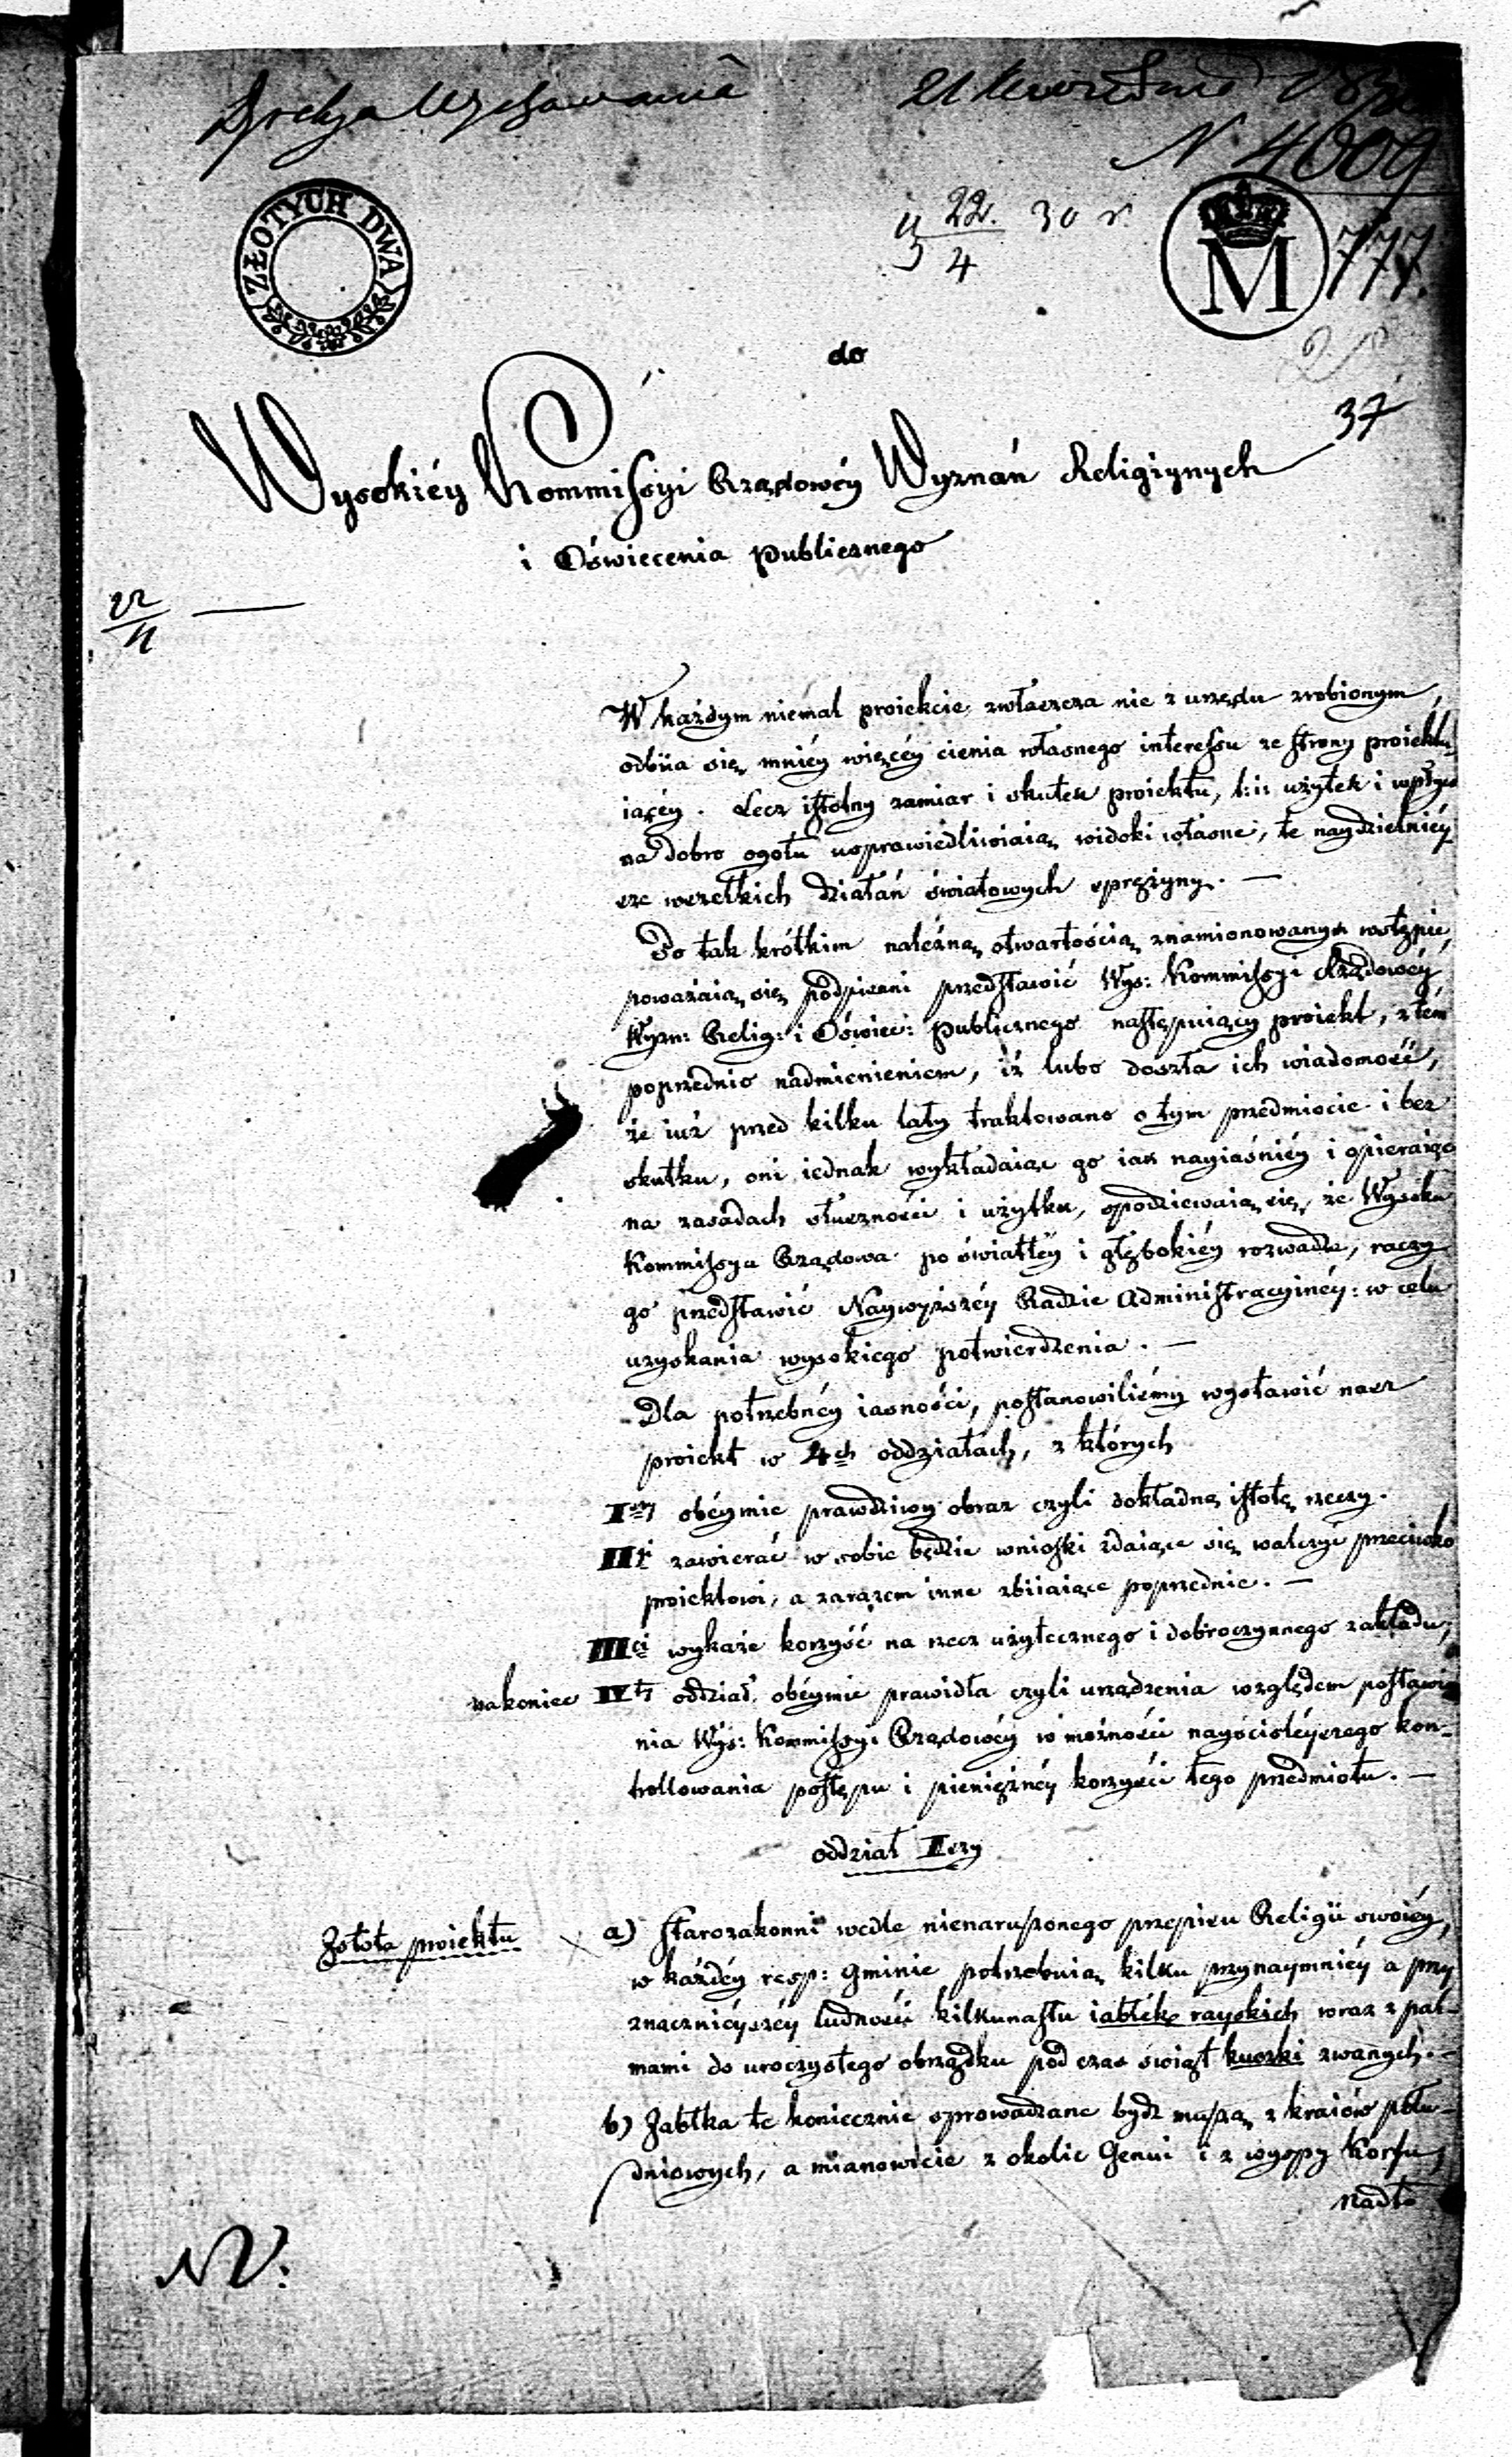 Dyrekcya Wychowania 21 Kwietnia 1830
N. 4009
ZŁOTYCH DWA
22. 30 r.
4
M
777.
37
do
Wysokiéy Kommissyi Rządowéy Wyznań Religiynych
i Oświecenia Publicznego
22
4
W każdym niemal proiekcie, zwłaszcza nie z urzędu zrobionym,
odbiia się mniéy więcéy cienia własnego interessu ze strony proiektu-
iącéy. Lecz istotny zamiar i skutek proiektu, t: i: użytek i wpływ
na dobro ogołu usprawiedliwiaią widoki własne, te naydzielniéy
sze wszelkich działań światowych sprężyny. —
Po tak krótkim należną otwartością znamionowanym wstępie,
poważaią się podpisani przedstawić Wys: Kommissyi Rządowéy
Wyzn: Relig: i Oświec: Publicznego następuiący proiekt, z tém
poprzednio nadmienieniem, iż lubo doszła ich wiadomość,
że iuż przed kilku laty traktowano o tym przedmiocie i bez
skutku, oni iednak wykładaiąc go iak nayiaśniéy i opieraiąc
na zasadach słuszności i użytku, spodziewaią się, że Wysoka
Kommissya Rządowa po światłéy i głębokiéy rozwadze, raczy
go przedstawić Naywyższéy Radzie Administracyinéy: w celu
uzyskania wysokiego potwierdzenia. —
Dla potrzebnéy iasności, postanowiliśmy wystawić nasz
proiekt w 4ch oddziałach, z których
Iszy obéymie prawdziwy obraz czyli dokładną istotę rzeczy.
IIi zawierać w sobie będzie wnioski zdaiące się walczyć przeciwko
proiektowi, a zarazem inne zbiiaiące poprzednie. —
IIIci wykaże korzyść na rzecz użytecznego i dobroczynnego zakładu,
nakoniec IVty oddział obéymie prawidła czyli urządzenia względem postawie
nia Wys: Kommissyi Rządowéy w możności nayściśléyszego kon-
trollowania postępu i pieniężnéy korzyści tego przedmiotu. —
oddział Iszy
Istota proiektu
a) Starozakonni wedle nienaruszonego przepisu Religii swoiéy,
w każdéy resp: Gminie potrzebuią kilku przynaymniéy a przy
znacznieyszéy ludności kilkunastu iabłek rayskich wraz z pal-
mami do uroczystego obrządku pod czas świąt kuczki zwanych. —
b) Jabłka te koniecznie sprowadzane bydź muszą z kraiów połu-
dniowych, a mianowicie z okolic Genui i z wyspy Korfu,
nadto